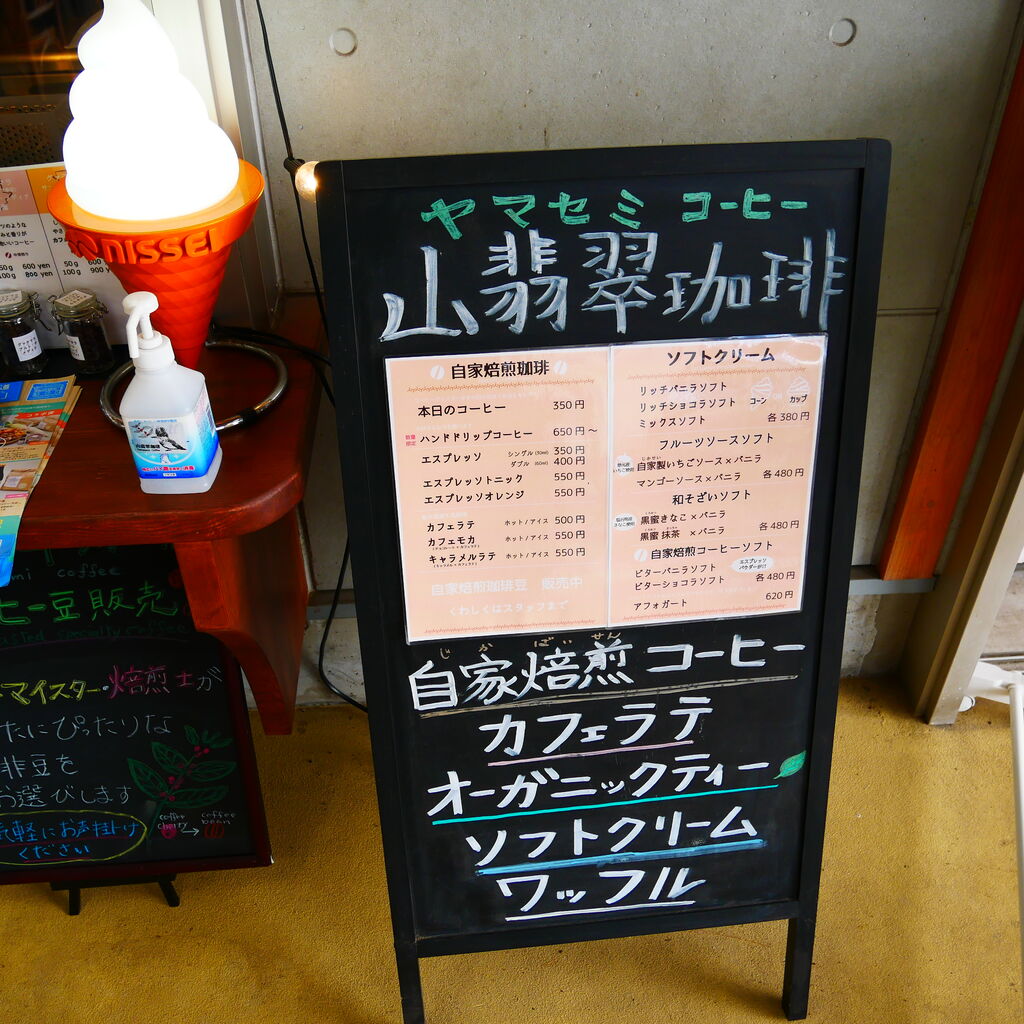 ヤマセミ コーヒー
山翡翠珈琲
自家焙煎珈琲
本日のコーヒー 350円
数量限定
ハンドドリップコーヒー 650円～
エスプレッソ シングル(30ml) 350円
ダブル(60ml) 400円
エスプレッソトニック 550円
エスプレッソオレンジ 550円
カフェラテ ホット/アイス 500円
カフェモカ ホット/アイス 550円
キャラメルラテ ホット/アイス 550円
自家焙煎珈琲豆 販売中
くわしくはスタッフまで
ソフトクリーム
リッチバニラソフト
リッチショコラソフト コーン OR カップ
ミックスソフト 各380円
フルーツソースソフト
自家製いちごソース×バニラ
マンゴーソース×バニラ 各480円
和そざいソフト
黒蜜きなこ×バニラ
黒蜜 抹茶 ×バニラ 各480円
自家焙煎コーヒーソフト
ビターバニラソフト エスプレッソパウダーがけ
ビターショコラソフト 各480円
アフォガート 620円
じかばいせん
自家焙煎コーヒー
カフェラテ
オーガニックティー
ソフトクリーム
ワッフル
NISSEI
50g 600 yen 50g
100g 800 yen 100g 900
coffee
ヒー豆販売
マイスター・焙煎士が
たにぴったりな
豆を
お選びします
気軽にお声掛け
ください
coffee cherry → coffee bean